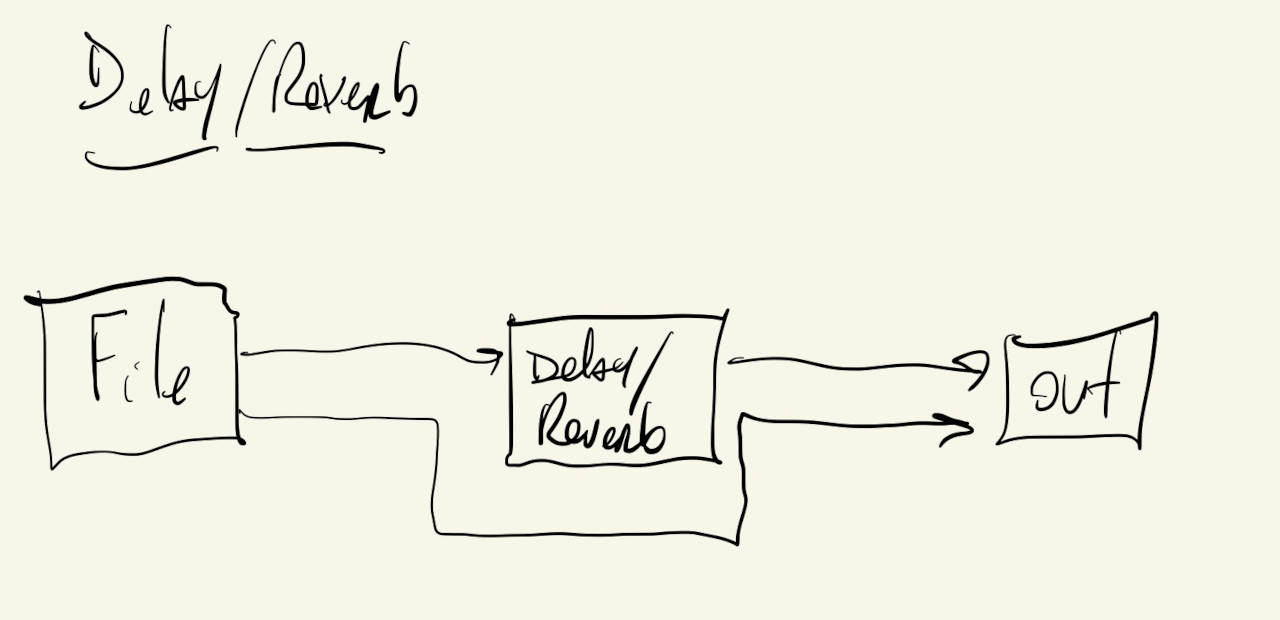 Delay/Reverb
File
Delay/
Reverb
out